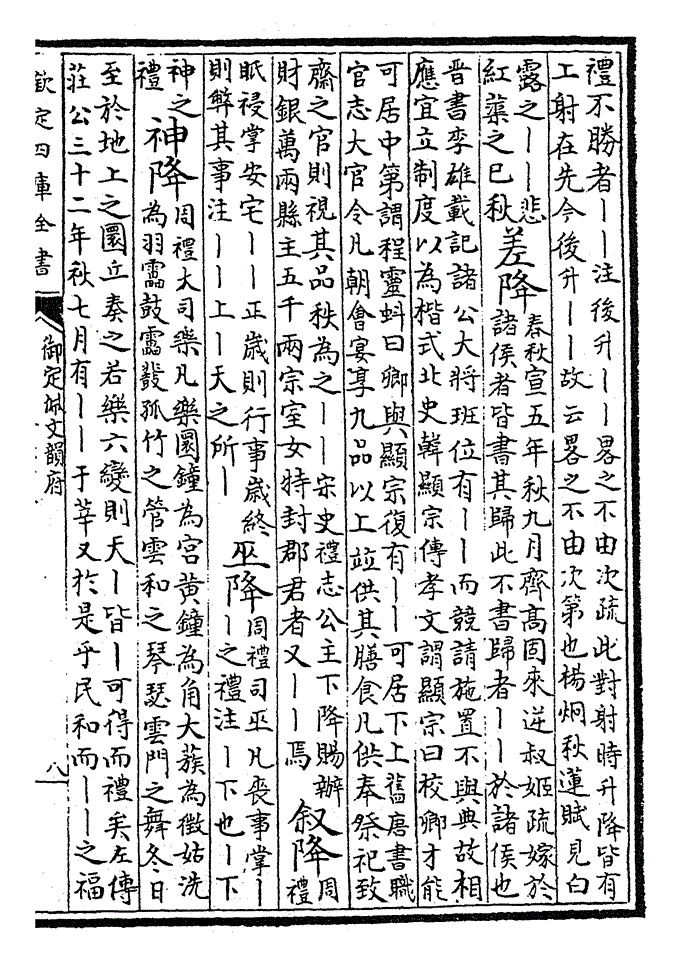 禮不勝者丨丨注後升丨丨畧之不由次疏此對射時升降皆有
工射在先今後升丨丨故云畧之不由次第也楊炯秋蓮賦見白
露之丨丨悲
紅蕖之已秋
差降
春秋宣五年秋九月齊髙固來逆叔姬疏嫁於
諸侯者皆書其歸此不書歸者丨丨於諸侯也
晋書李雄載記諸公大將班位有丨丨而競請施置不與典故相
應宜立制度以為楷式北史韓顯宗傳孝文謂顯宗曰校卿才能
可居中第謂程靈虯曰卿與顯宗復有丨丨可居下上舊唐書職
官志大官令凡朝會宴享九品以上竝供其膳食凡供奉祭祀致
齋之官則視其品秩為之丨丨宋史禮志公主下降賜辦
財銀萬兩縣主五千兩宗室女特封郡君者又丨丨焉
叙降
周
禮
眡祲掌安宅丨丨正歲則行事歲終
則弊其事注丨丨上丨天之所丨
巫降
周禮司巫凡喪事掌丨
丨之禮注丨下也丨下
神之
禮
神降
周禮大司樂凡樂圜鐘為宮黄鐘為角大蔟為徵姑洗
為羽靁鼓靁鼗孤竹之管雲和之琴瑟雲門之舞冬日
至於地上之圜丘奏之若樂六變則天丨皆丨可得而禮矣左傳
莊公三十二年秋七月有丨丨于莘又於是乎民和而丨丨之福
欽定四庫全書
御定佩文韻府
八